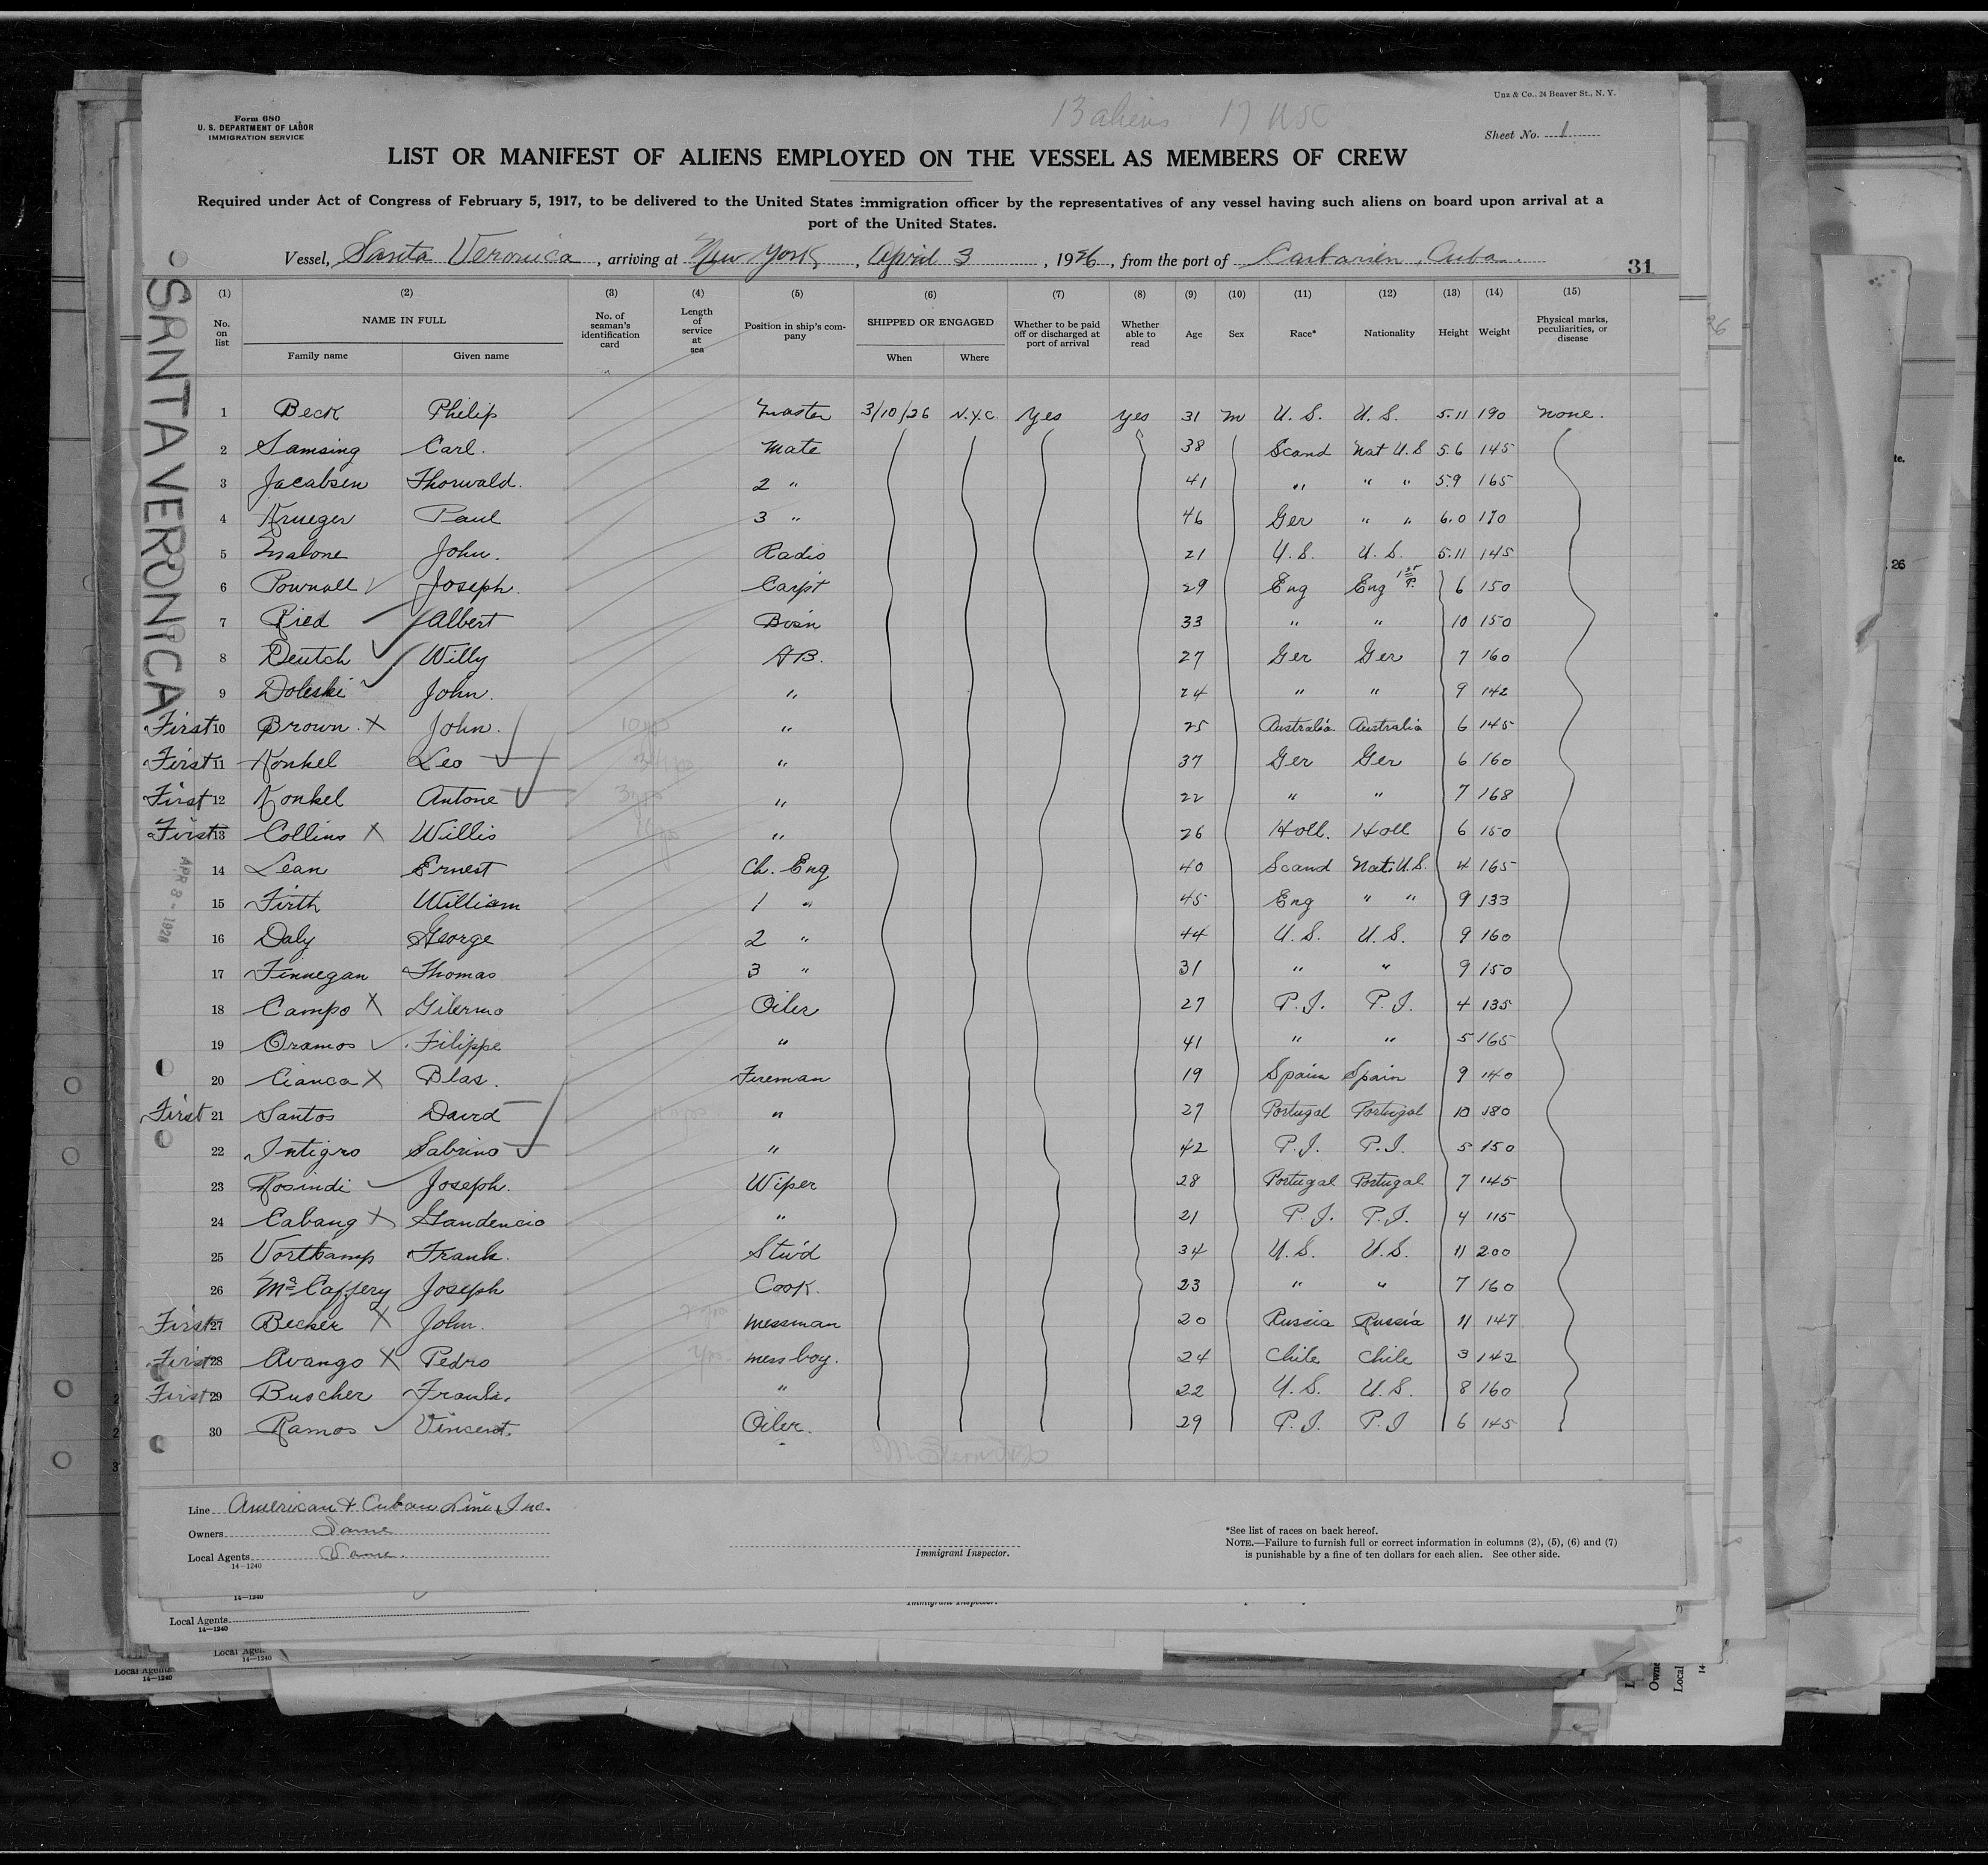 13 aliens 17 USC
Unz & Co., 24 Beaver St., N. Y.
Form 680
U. S. DEPARTMENT OF LABOR
IMMIGRATION SERVICE
Sheet No. 1
LIST OR MANIFEST OF ALIENS EMPLOYED ON THE VESSEL AS MEMBERS OF CREW
Required under Act of Congress of February 5, 1917, to be delivered to the United States immigration officer by the representatives of any vessel having such aliens on board upon arrival at a
port of the United States.
Vessel, Santa Veronica, arriving at New York, April 3, 1926, from the port of Caibarien, Cuba.
31
SANTA VERONICA
(1) (2) (3) (4) (5) (6) (7) (8) (9) (10) (11) (12) (13) (14) (15)
No. on list NAME IN FULL Family name Given name No. of seaman's identification card Length of service at sea Position in ship's company SHIPPED OR ENGAGED When Where Whether to be paid off or discharged at port of arrival Whether able to read Age Sex Race* Nationality Height Weight Physical marks, peculiarities, or disease
1 Beck Philip Master 3/10/26 N.Y.C. Yes Yes 31 M U.S. U.S. 5.11 190 None.
2 Samsing Carl. Mate 38 Scand Nat U.S 5.6 145
3 Jacabsen Thorwald. 2 " 41 " " " 5.9 165
4 Krueger Paul 3 " 46 Ger " " 6.0 170
5 Malone John. Radio 21 U.S. U.S. 5.11 145
6 Pownall Joseph. Carpt 29 Eng Eng 1st P. 6 150
7 Ried Albert Bosn 33 " " 10 150
8 Deutch Willy AB. 27 Ger Ger 7 160
9 Doleski John. " 24 " " 9 142
First 10 Brown. X John. 10 yrs " 25 Australia. Australia 6 145
First 11 Konkel Leo " 37 Ger Ger 6 160
First 12 Konkel Antone 3 yrs " 22 " " 7 168
First 13 Collins X Willis " 26 Holl. Holl 6 150
14 Lean Ernest Ch. Eng 40 Scand Nat. U.S. 4 165
APR 3 - 1926
15 Firth William 1 " 45 Eng " " 9 133
16 Daly George 2 " 44 U.S. U.S. 9 160
17 Finnegan Thomas 3 " 31 " " 9 150
18 Campo X Gilermo Oiler 27 P.I. P.I. 4 135
19 Oramos Filippe " 41 " " 5 165
20 Cianca X Blas. Fireman 19 Spain Spain 9 140
First 21 Santos David " 27 Portugal Portugal 10 180
22 Intigro Sabrino " 42 P.I. P.I. 5 150
23 Rosindi Joseph. Wiper 28 Portugal Portugal 7 145
24 Cabang X Gaudencio " 21 P.I. P.I. 4 115
25 Vortkamp Frank. Stu'd 34 U.S. U.S. 11 200
26 McCaffery Joseph Cook. 23 " " 7 160
First 27 Becker X John. Messman 20 Russia Russia 11 147
First 28 Avango X Pedro mess boy. 24 Chile Chile 3 142
First 29 Buscher Frank. " 22 U.S. U.S. 8 160
30 Ramos Vincent. Oiler. 29 P.I. P.I 6 145
Line American & Cuban Line, Inc.
Owners Same
Local Agents Same.
14-1240
Immigrant Inspector.
*See list of races on back hereof.
NOTE.—Failure to furnish full or correct information in columns (2), (5), (6) and (7)
is punishable by a fine of ten dollars for each alien. See other side.
14—1240
Local Agents
14—1240
Local Agen
14—1240
Local Agents
14—1240
26